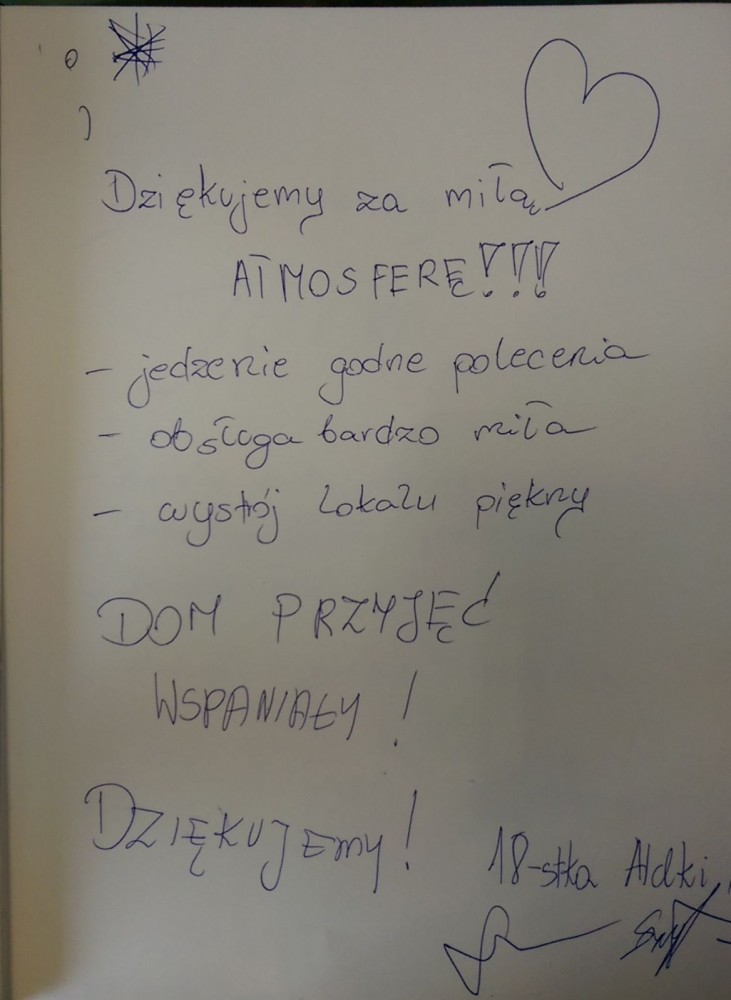 Dziękujemy za miłą
ATMOSFERĘ!!!
- jedzenie godne polecenia
- obsługa bardzo miła
- wystrój lokalu piękny
DOM PRZYJĘĆ
WSPANIAŁY!
DZIĘKUJEMY!
18-stka